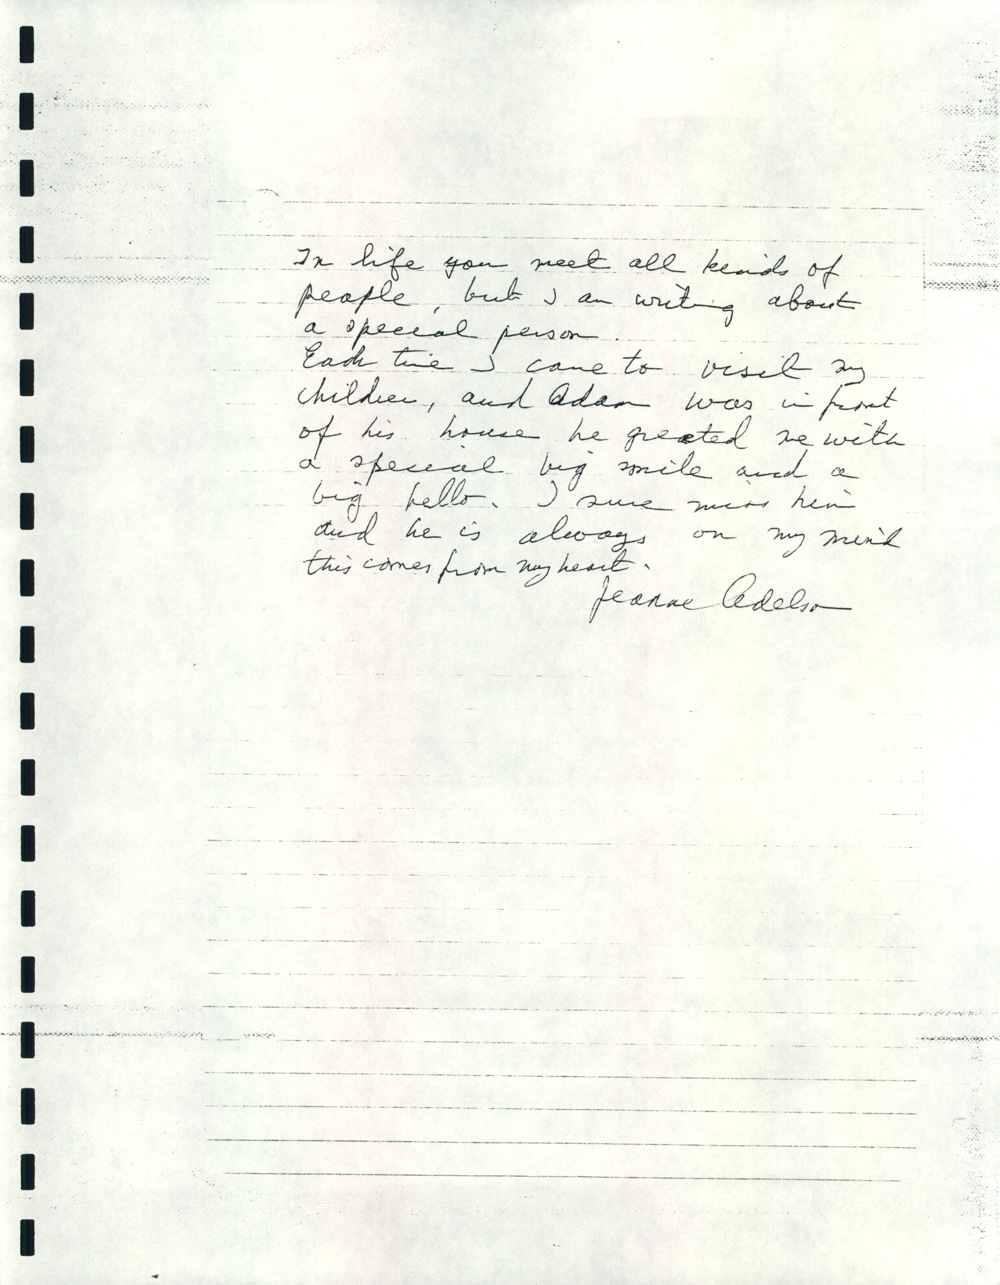 In life you meet all kinds of
people, but I am writing about
a special person.
Each time I came to visit my
children, and Adam was in front
of his house he greeted me with
a special big smile and a
big hello. I sure miss him
and he is always on my mind
this comes from my heart.
Jeanne Adelson